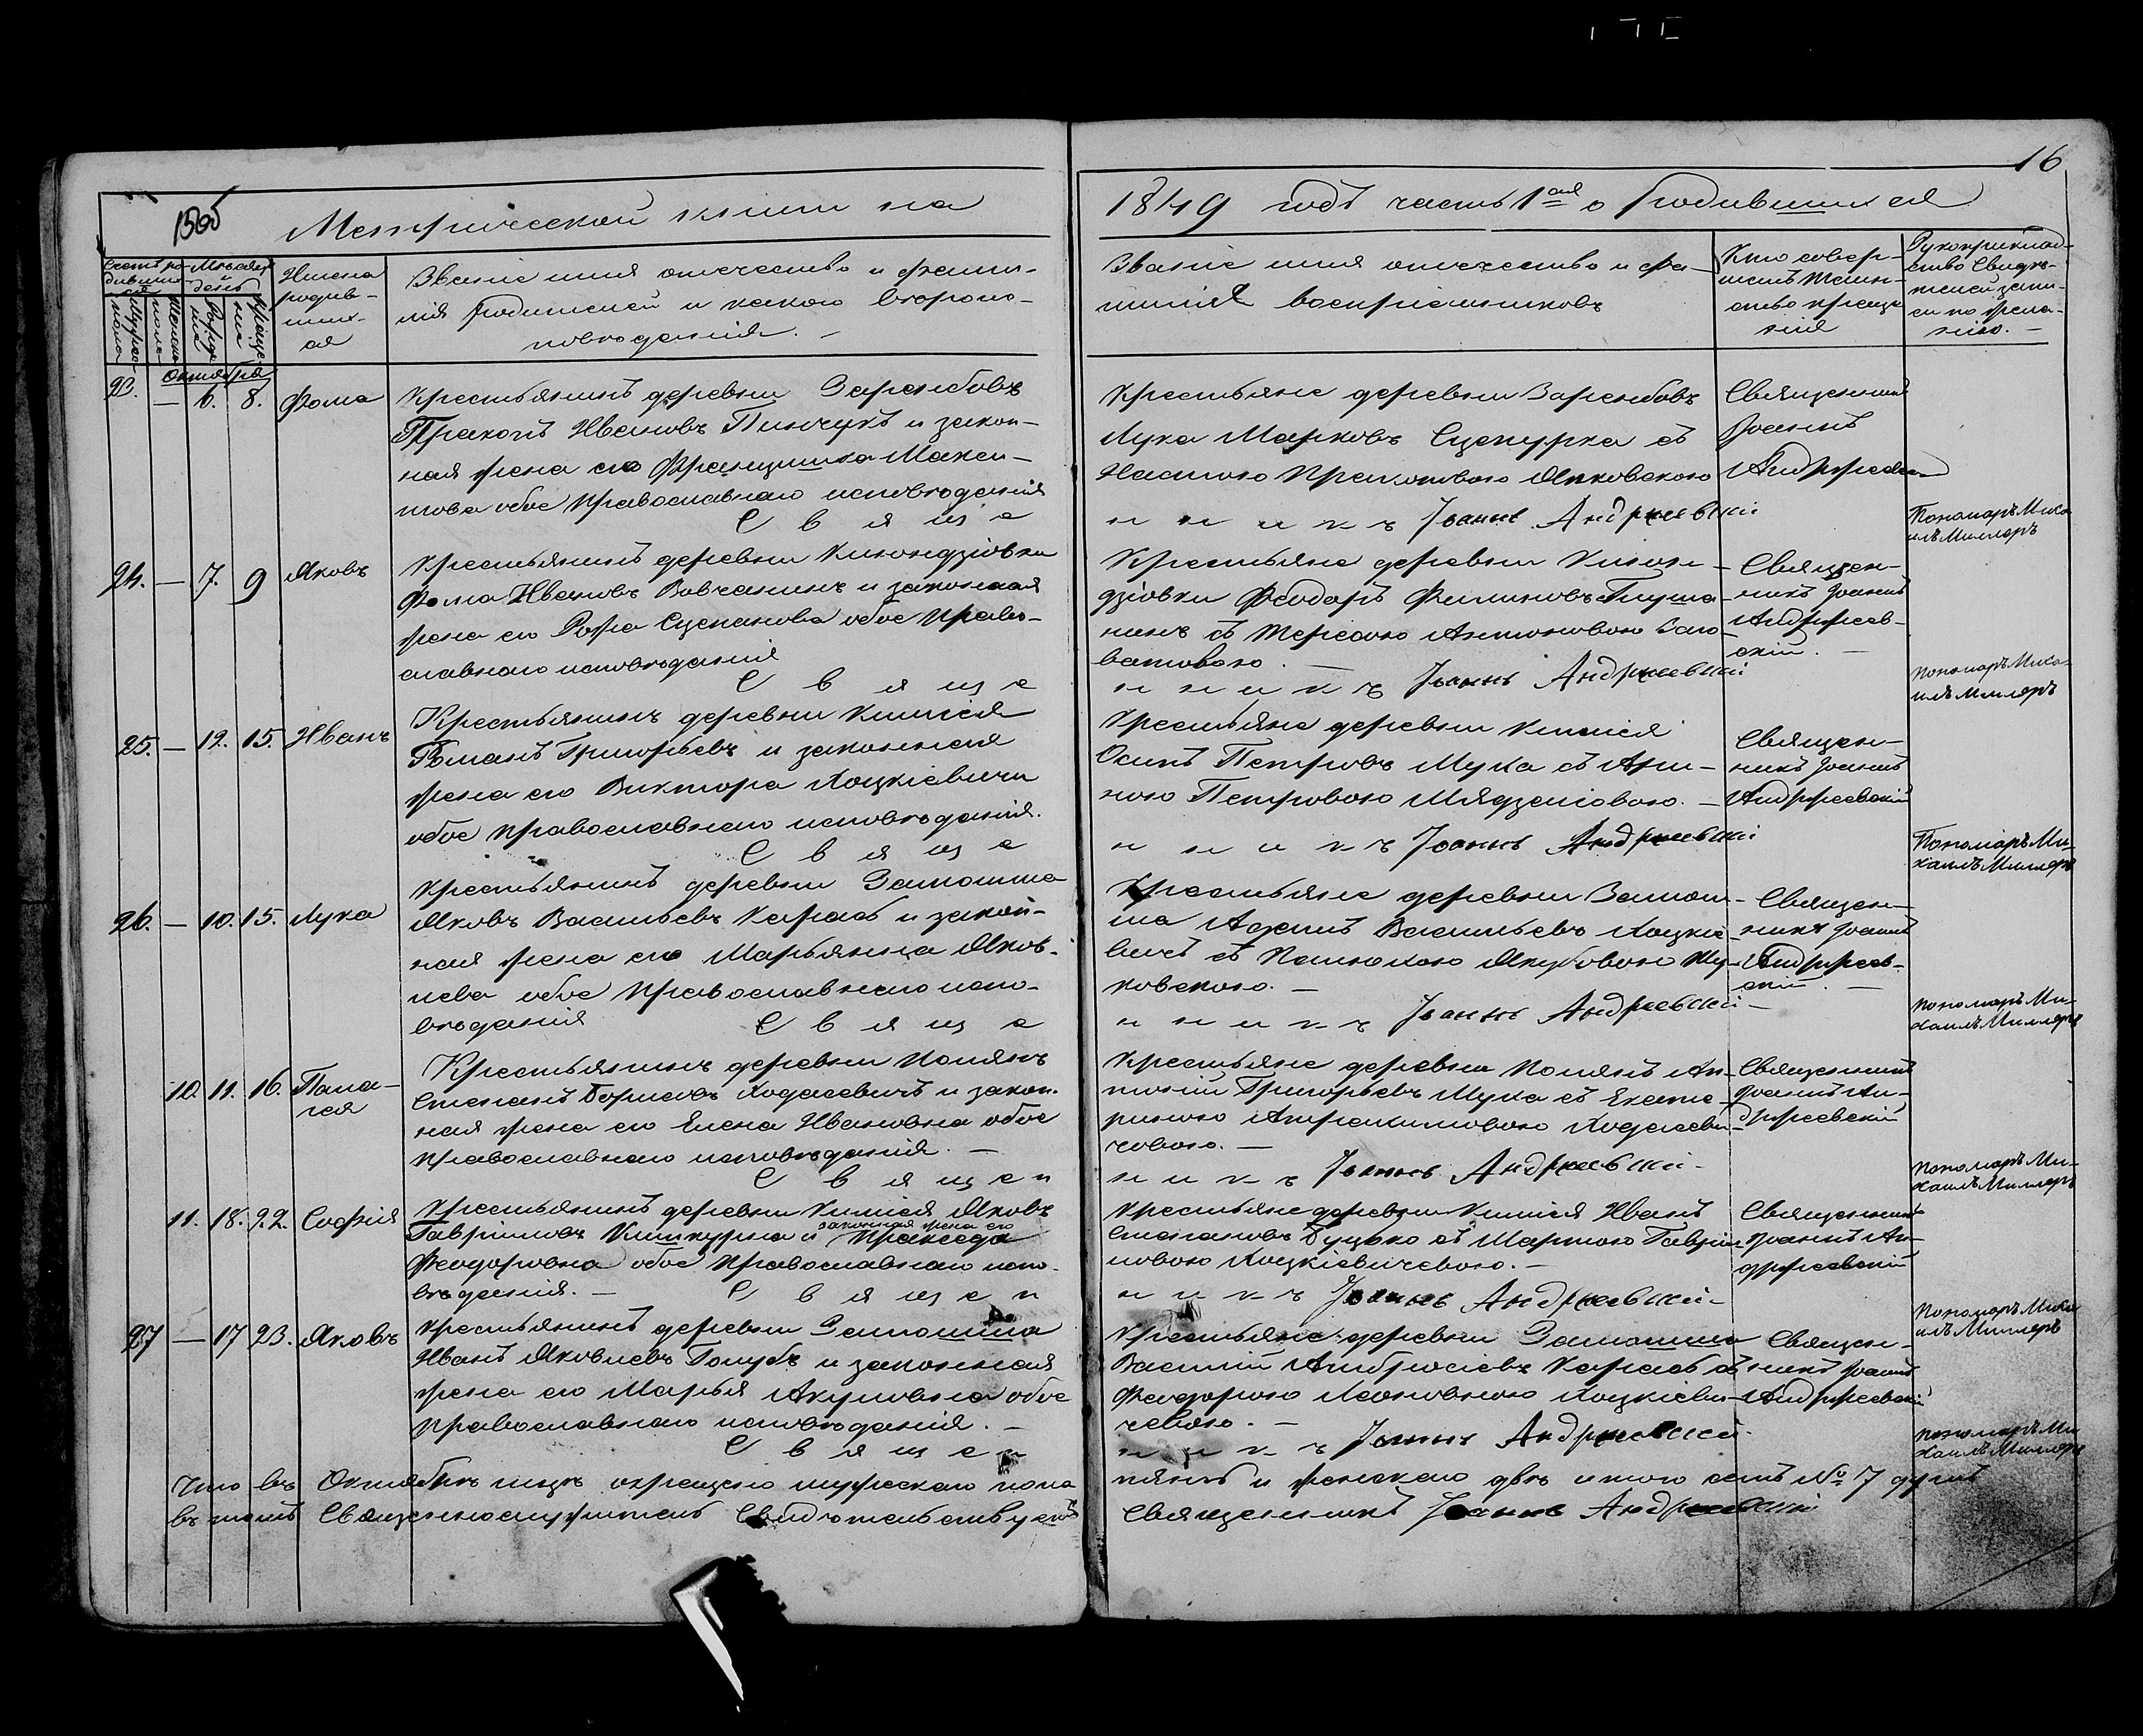 16
15об
Метрической книги на
1849 годъ часть 1ая о родившихся
Счетъ ро-
дивших-
ся
Мѣсяцъ
и
день
Мужеска
пола
Женска
пола
Рожде-
нія
Креще-
нія
Имена
родив-
ших-
ся
Званіе имя отечество и фами-
лія родителей и какого вѣроис-
повѣданія. -
Званіе имя отечество и фа-
милія воспріемниковъ
Кто совер-
шалъ таин-
ство креще
нія
Рукоприклад-
ство свидѣ-
телей запи-
си по жела-
нію. -
Октября
23. — 6. 8. Фома
Крестьянинъ деревни Зарембовъ
Ивановъ Пинчукъ и закон-
ная жена его Францишка Макси-
мова обое православнаго исповѣданія
С в я щ е
Крестьяне деревни Зарембовъ
Лука Марковъ Сцепурка съ
Настою Янковскою
Священникъ
Іоаннъ
н н и к ъ Іоаннъ Андреевскій
Пономаръ Миха
илъ Миллеръ
24. — 7. 9 Яковъ
Крестьянинъ деревни
Фома Ивановъ Вовчанинъ и законная
жена его Рожа Сцепанова обое право-
славнаго исповѣданія
С в я щ е
Крестьяне деревни
Феодоръ Филиповъ
съ Тересою Антоновою
Священ-
никъ Іоаннъ
Андреев-
скій. —
н н и к ъ Іоаннъ Андреевскій
Пономаръ Миха-
илъ Миллеръ
25. — 12. 15. Иванъ
Крестьянинъ деревни
Романъ Григорьевъ и законная
жена его Виктора Коцкіевичи
обое православнаго исповѣданія.
С в я щ е
Крестьяне деревни
Осипъ Петровъ Муха съ
Петровою
Священ-
никъ Іоаннъ
Андреевскій
н н и к ъ Іоаннъ Андреевскій
Пономаръ Ми-
хаилъ Миллеръ
26. — 10. 15. Лука
Крестьянинъ деревни Замошша
Яковъ Васильевъ Карась и закон-
ная жена его Марьянна Яков-
лева обое православнаго испо-
вѣданія С в я щ е
Крестьяне деревни Замош-
ша Адамъ Васильевъ Коцкіе-
вичъ съ Якубовою Жу-
ковскою. —
Священ-
никъ Іоаннъ
Андреев-
скій. —
н н и к ъ Іоаннъ Андреевскій
Пономаръ Ми-
хаилъ Миллеръ
10. 11. 16. Пала-
гея
Крестьянинъ деревни
Степанъ Борисовъ Ходасевичъ и закон-
ная жена его Елена Ивановна обое
православнаго исповѣданія. —
С в я щ е н
Крестьяне деревни Ан-
тоній Григорьевъ Муха съ Екате-
риною Ходасеви-
човою. —
Священникъ
Іоаннъ Ан-
дреевскій
н и к ъ Іоаннъ Андреевскій
Пономаръ Ми-
хаилъ Миллеръ
11. 18. 22. Софія
Крестьянинъ деревни Яковъ
законная жена его
Гавріиловъ и Пракседа
Феодоровна обое православнаго испо-
вѣданія. — С в я щ е н
Крестьяне деревни Иванъ
Степановъ съ Мартою Гаврі-
ловою Коцкіевичевою. —
Священникъ
Іоаннъ Ан-
дреевскій
н и к ъ Іоаннъ Андреевскій
Пономаръ Миха
илъ Миллеръ
27 — 17 23. Яковъ
Крестьянинъ деревни Замошша
Иванъ Яковлевъ Голубъ и законная
жена его Марья Акуловна обое
православнаго исповѣданія. —
С в я щ е н
Крестьяне деревни Замошша
Василій Амбросіевъ Карась съ
Феодорою Коцкіеви-
чевою. —
Священ-
никъ Іоаннъ
Андреевскій
н и к ъ Іоаннъ Андреевскій
Пономаръ Ми-
хаилъ Миллеръ
Что въ Октябрѣ мцѣ окрещено мужеска пола
пять и женскаго двѣ итого семь № 7 душъ
въ томъ Священнослужитель свидѣтельствуетъ
Священникъ Іоаннъ Андреевскій